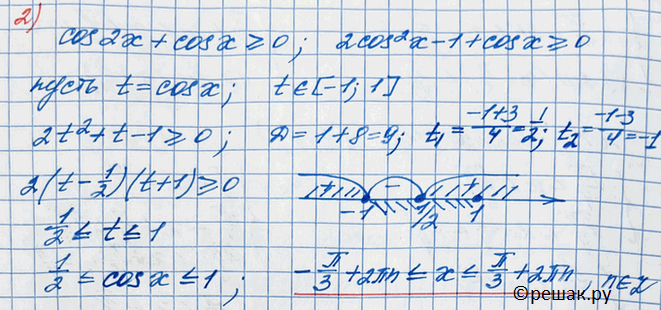 2)
cos2x + cosx ≥ 0; 2cos²x - 1 + cosx ≥ 0
пусть t = cosx; t ∈ [-1; 1]
2t² + t - 1 ≥ 0; Д = 1 + 8 = 9; t₁ = (-1+3)/4 = 1/2; t₂ = (-1-3)/4 = -1
2(t - 1/2)(t + 1) ≥ 0
+ - +
-1 1/2 1
1/2 ≤ t ≤ 1
1/2 ≤ cosx ≤ 1; -π/3 + 2πn ≤ x ≤ π/3 + 2πn, n∈Z
©решак.ру